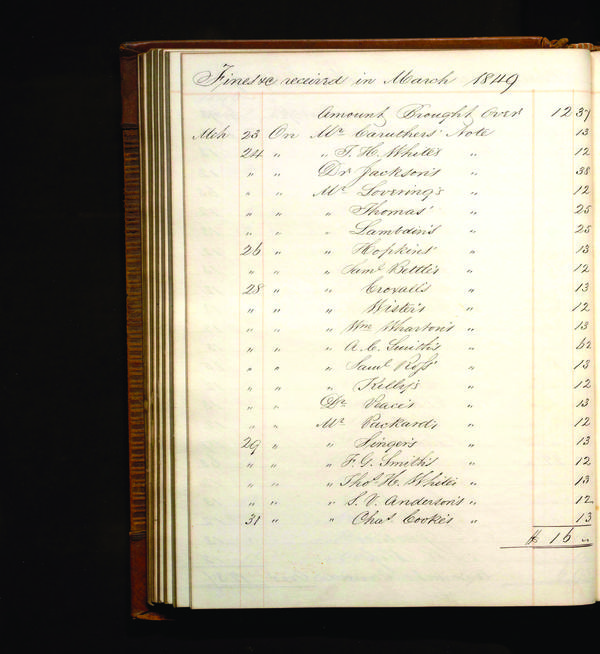 Fines &c received in March 1849
Amount Brought Over 12 37
Mch 23 On Mr. Caruthers' Note 13
24 " " T. H. White's " 12
" " Dr Jackson's " 38
" " Mr. Lovering's " 12
" " " Thomas' " 25
" " " Lambdin's " 25
26 " " Hopkins' " 13
" " " Saml. Bettle's " 12
28 " " Croxall's " 13
" " " Wister's " 12
" " " Wm Wharton's " 13
" " " A. C. Smith's " 62
" " " Saml Ross' " 13
" " " Kelly's " 12
" " Dr. Peace's " 13
" " Mr. Packard's " 12
29 " " Singer's " 13
" " " F. G. Smith's " 12
" " " Thos. H. White's " 13
" " " S. V. Anderson's " 12
31 " " Chas. Cooke's " 13
$ 16 "